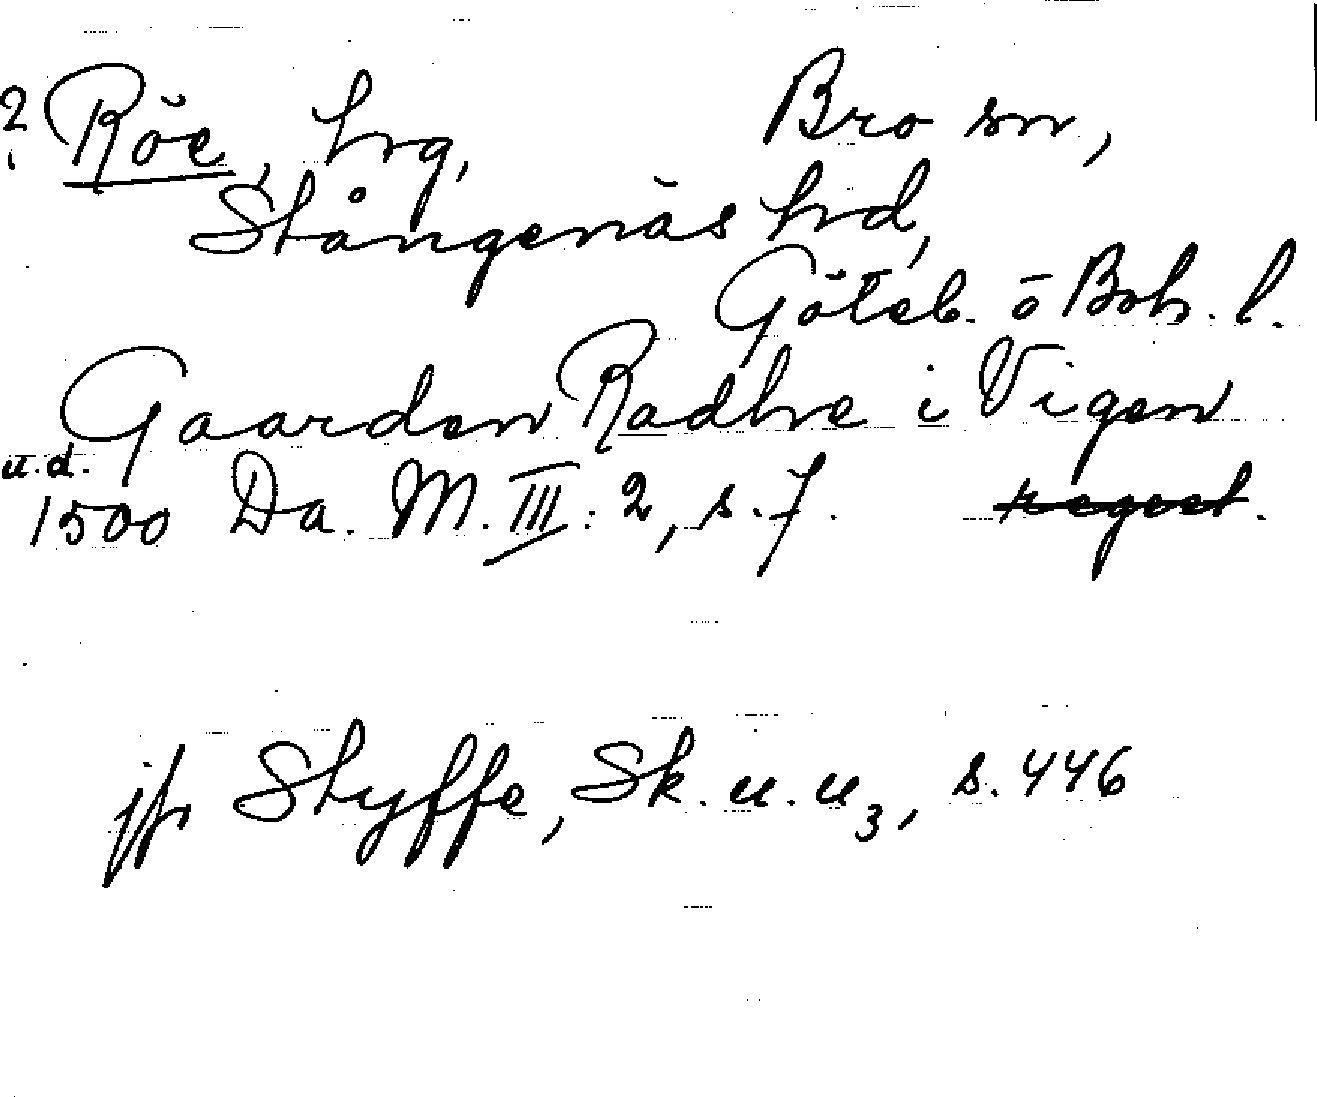 ? Röe, hrg, Bro sn,
Stångenäs hrd,
Göteb. ō Boh. l.
Gaarden Radhe i Vigen
u.d.
1500 Da. M. III: 2, s. 7. regest.
jfr Styffe, Sk. u. u3, s. 446